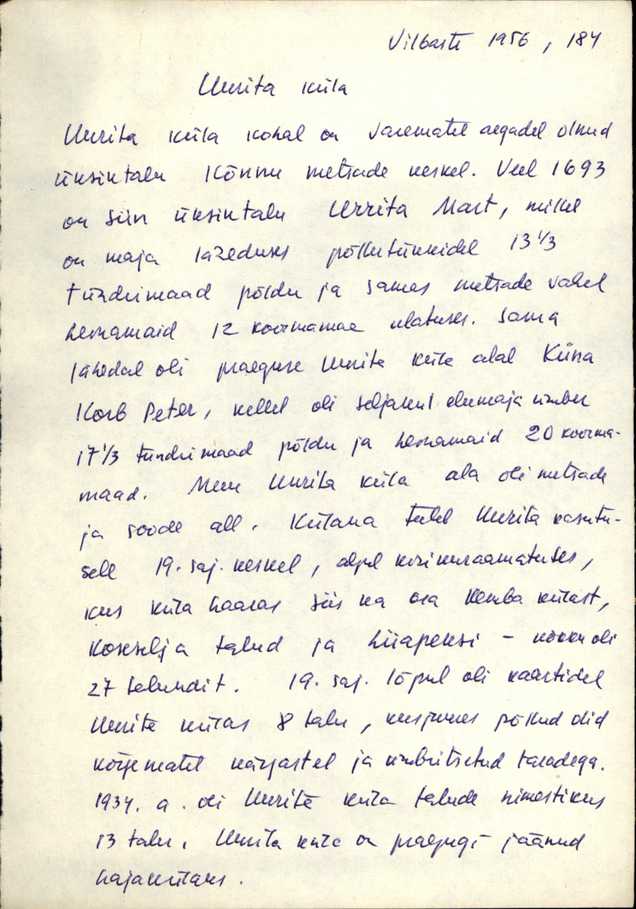 Vilbaste 1956, 184
Uurita küla
Uurita küla kohal on varematel aegadel olnud
üksiktalu Kõnnu metsade keskel. Veel 1693
on siin üksiktalu Urrita Mart, millel
on maja läheduses põllutükkidel 13 1/3
tündrimaad põldu ja samas metsade vahel
heinamaid 12 koormamaa ulatuses. Sama
lähedal oli praeguse Uurita küla alal Küna
Korb Peter, kellel oli seljakul elumaja ümber
17 1/3 tündrimaad põldu ja heinamaid 20 koorma-
maad. Muu Uurita küla ala oli metsade
ja soode all. Külana tuleb Uurita kasutu-
sele 19. saj. keskel, algul kirikuraamatutes,
kus küla haaras siis ka osa Kemba külast,
Koseselja talud ja Hiiapeksi - kokku oli
27 talundit. 19. saj. lõpul oli kaartidel
Uurita külas 8 talu, kusjuures põllud olid
kõrgematel kärjastel ja ümbritsetud taradega.
1934. a. oli Uurita küla talude nimestikus
13 talu. Uurita küla on praegugi jäänud
hajakülaks.